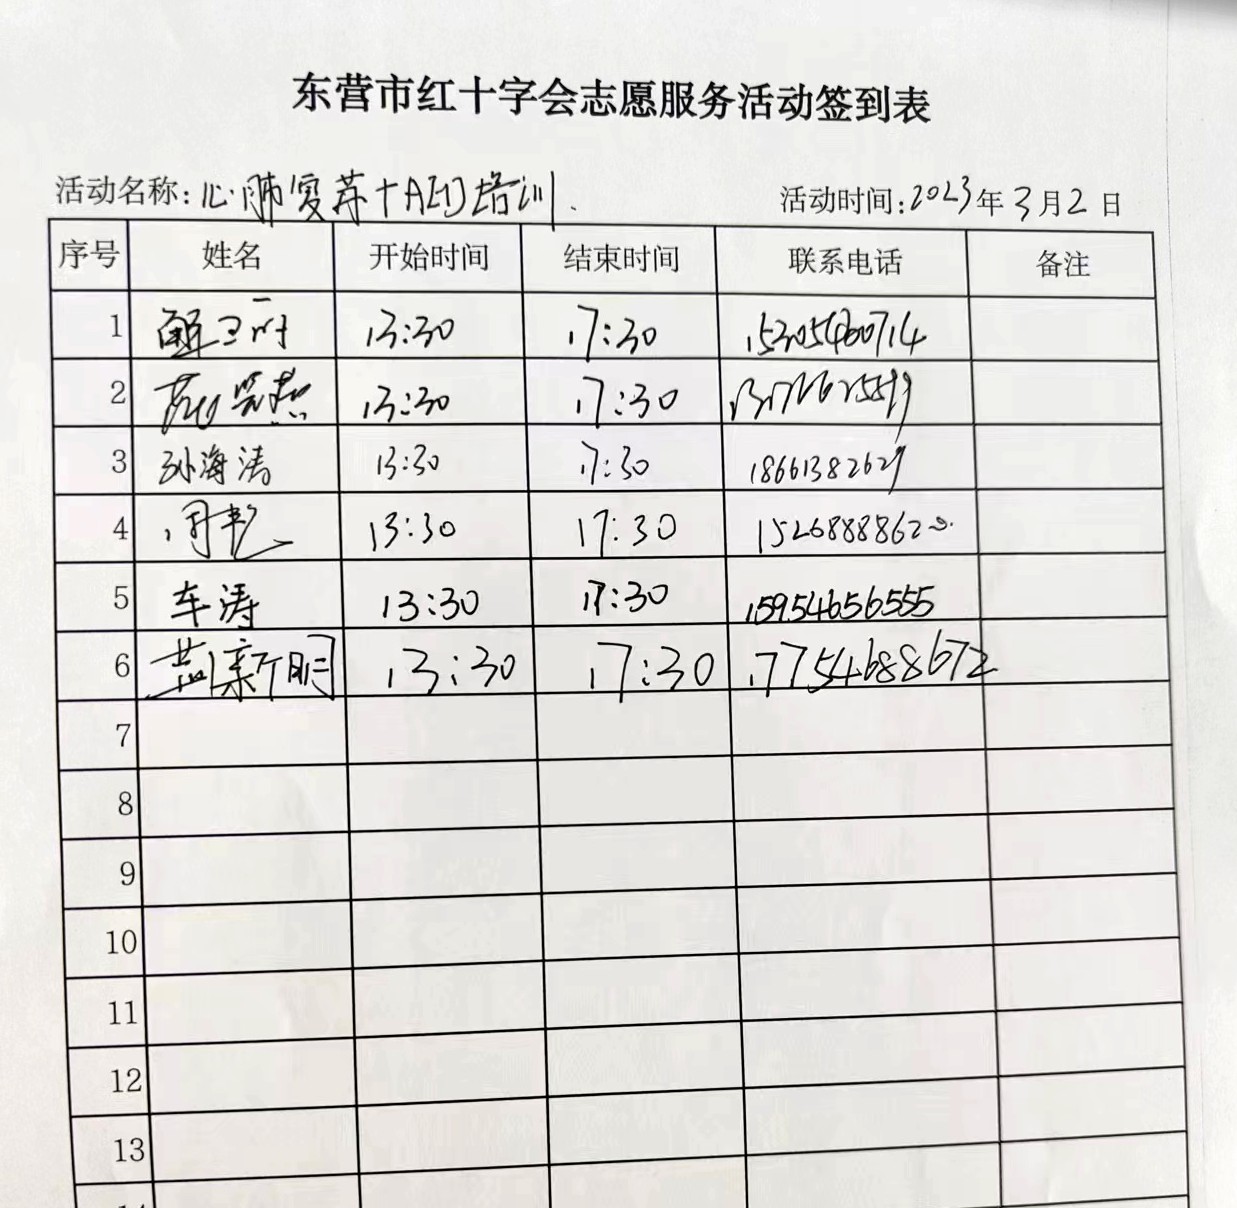 东营市红十字会志愿服务活动签到表
活动名称:心肺复苏+AED培训 活动时间:2023年3月2日
序号 姓名 开始时间 结束时间 联系电话 备注
1 13:30 17:30 15305460714
2 13:30 17:30
3 孙海涛 13:30 17:30 18661382629
4 周艳 13:30 17:30 15268888620
5 车涛 13:30 17:30 15954656555
6 盖新明 13:30 17:30 17754688672
7
8
9
10
11
12
13